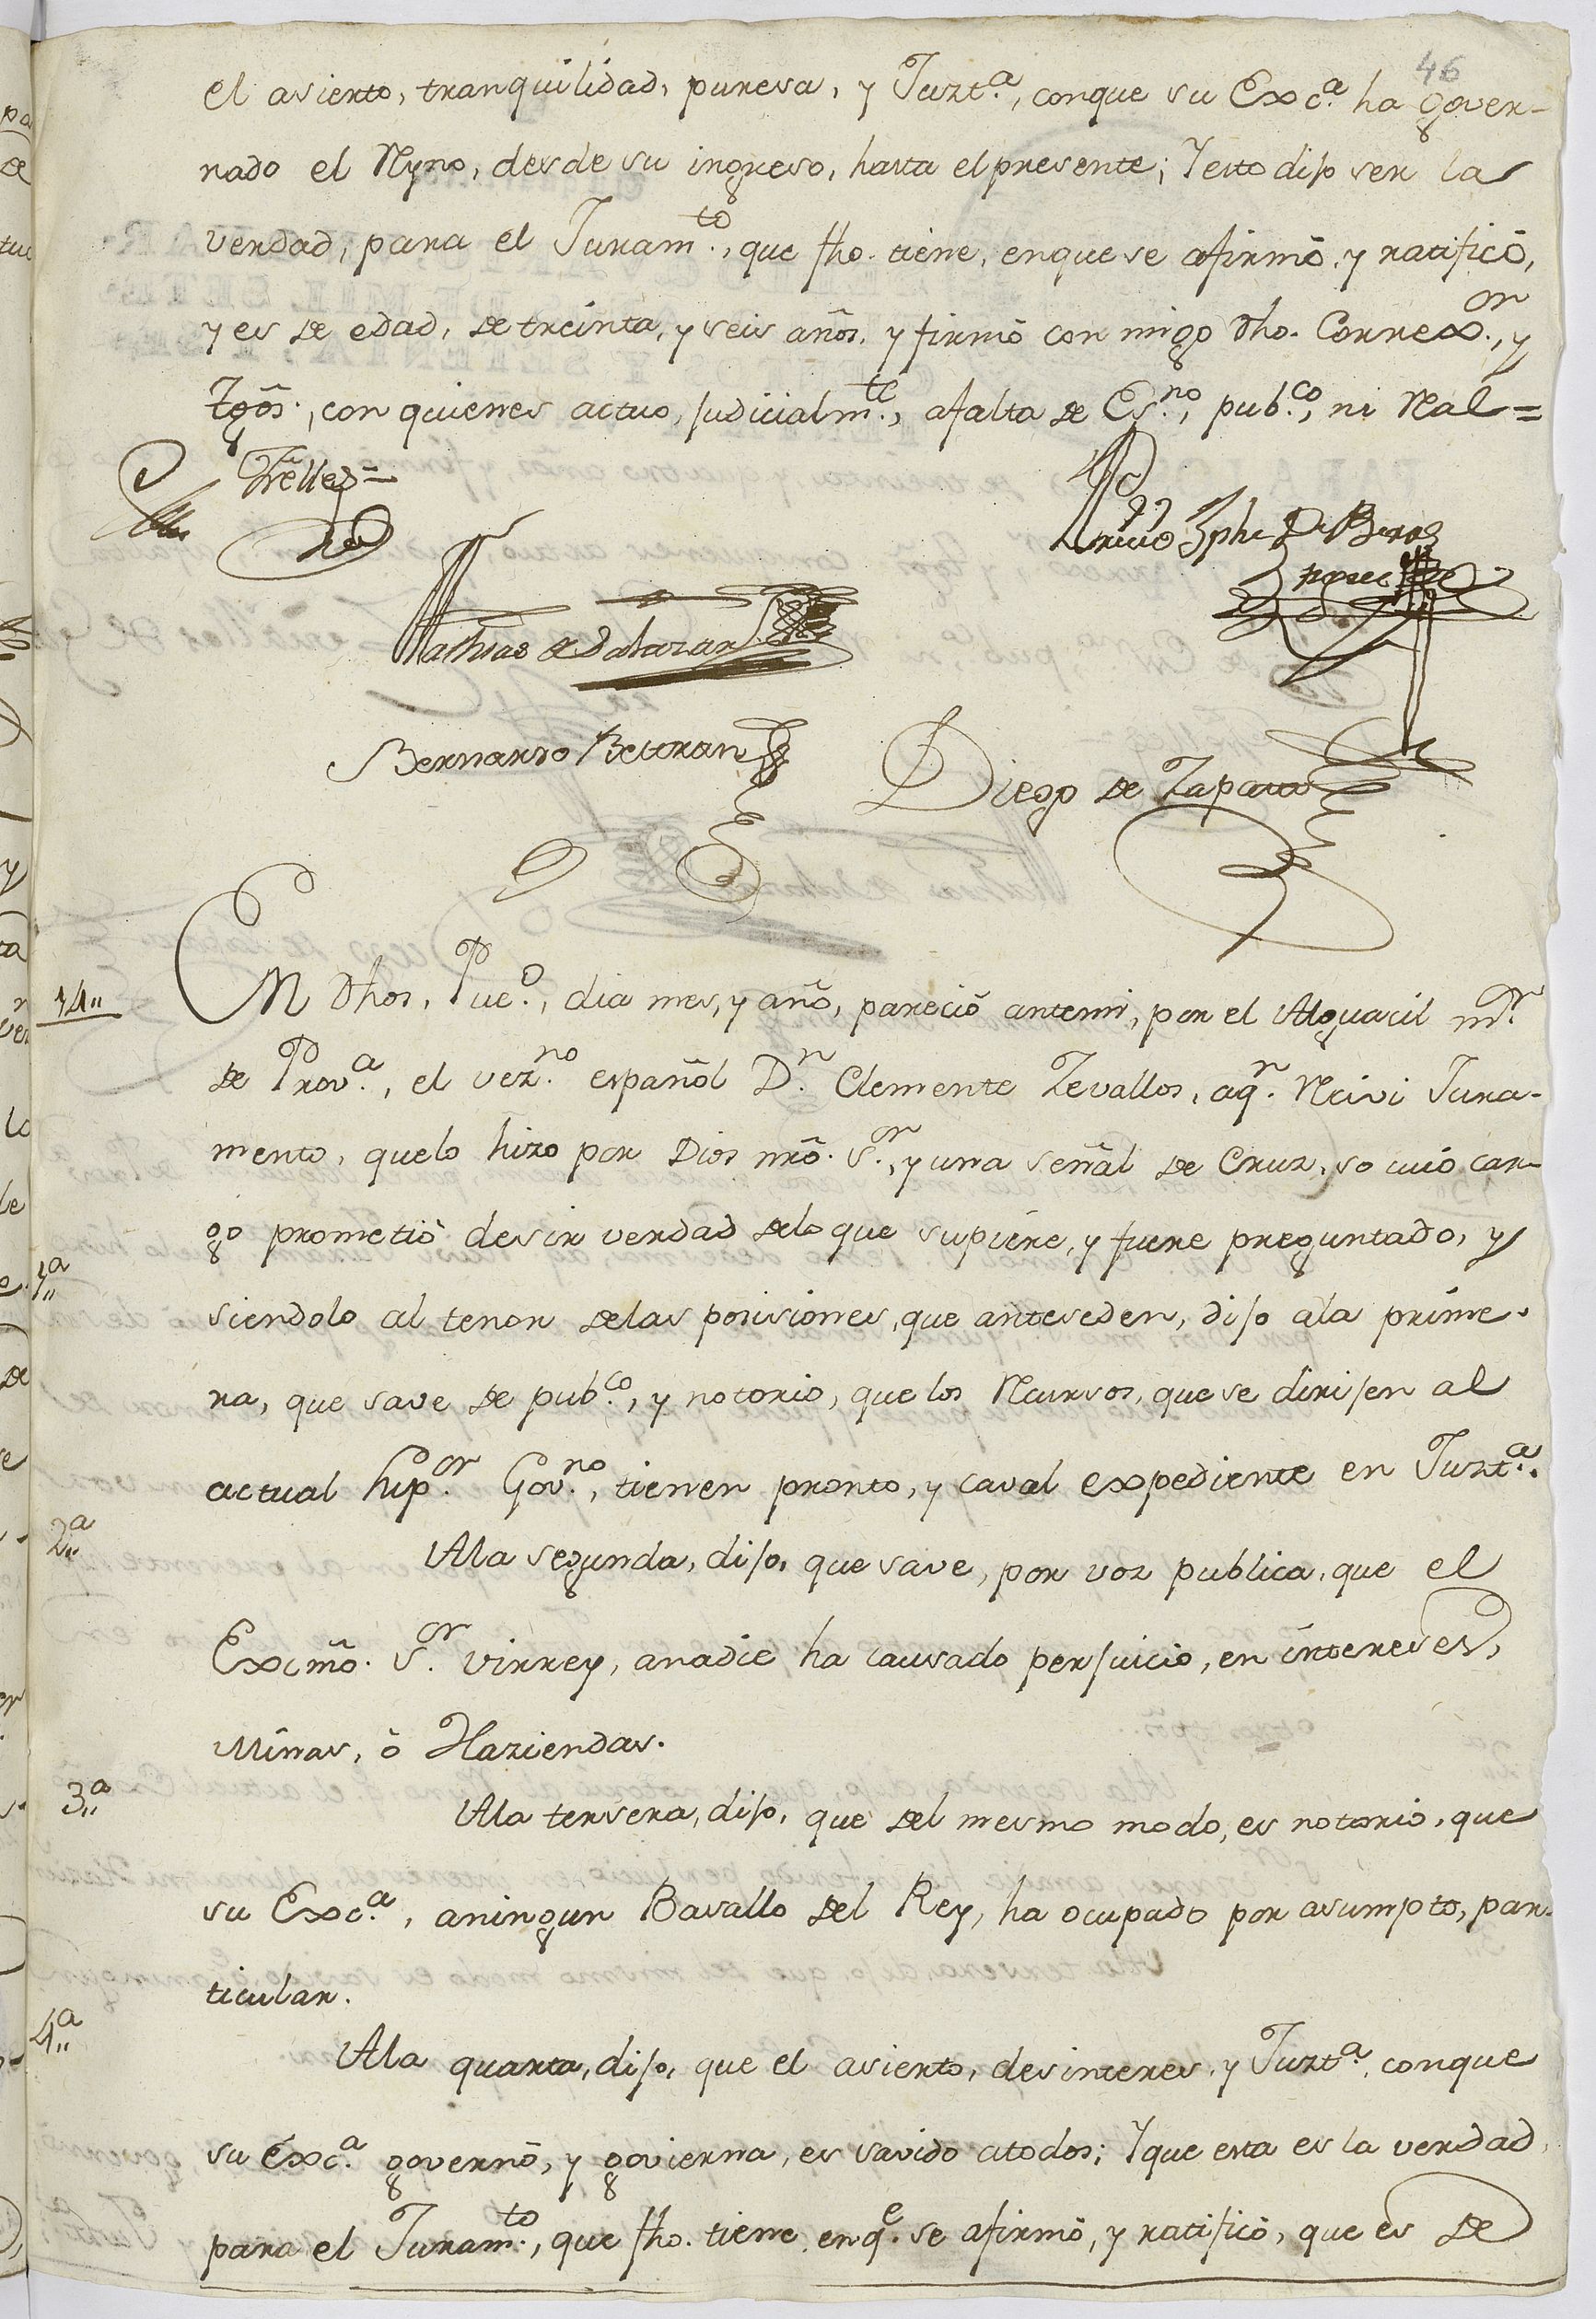 46
el asierto, tranquilidad, puresa, y Juzt.ª, conque su Exc.ª ha gover-
nado el Ryno, desde su ingreso, hasta el presente; Y esto dijo ser la
verdad, para el Juram.to, que fho. tiene, enque se afirmó, y ratificó,
y es de edad, de treinta, y seis años, y firmó con migo dho. Correx.or, y
Tgõs., con quienes actuo, judicialm.te, afalta de Es.no, pub.co, ni Real=
Trelles=
Jph. De
Mathias de Salazar
Bernardo Betoran
Diego de Zapata
14,,
En dhos. Pue.o, dia mes, y año, pareció antemi, por el Alguacil m.r
de Prov.ª, el vez.no español D.n Clemente Zevallos, aq.n Reivi Jura-
mento, quelo hizo por Dios nrõ. S.or, y una señal de Cruz, so cuio car-
go prometió desir verdad delo que supiere, y fuere preguntado, y
1,,ª
siendolo al tenor delas posisiones, que anteseden, dijo ala prime-
ra, que save de pub.co, y notorio, que los Recursos, que se dirijen al
actual Sup.or Gov.no, tienen pronto, y caval expediente en Juzt.ª.
2,,ª
Ala segunda, dijo, que save, por voz publica, que el
Excmõ. S.or Virrey, anadie ha causado perjuicio, en intereses,
Minas, ò Haziendas.
3,,ª
Ala tersera, dijo, que del mesmo modo, es notorio, que
su Exc.ª, aningun Basallo del Rey, ha ocupado por asumpto, par-
ticular.
4,,ª
Ala quarta, dijo, que el asierto, desinteres, y Juzt.ª conque
su Exc.ª governó, y govierna, es savido atodos; Y que esta es la verdad,
para el Juram.to, que fho. tiene, enq.e se afirmó, y ratificó, que es de